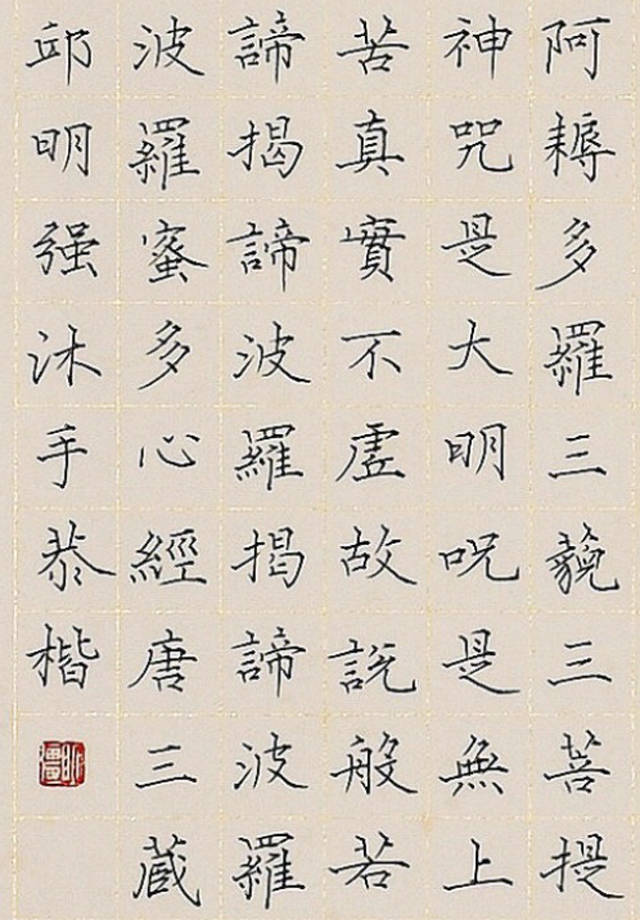 阿耨多羅三藐三菩提
神咒是大明呪是無上
苦真實不虛故説般若
諦揭諦波羅揭諦波羅
波羅蜜多心經唐三蔵
邱明强沐手恭楷